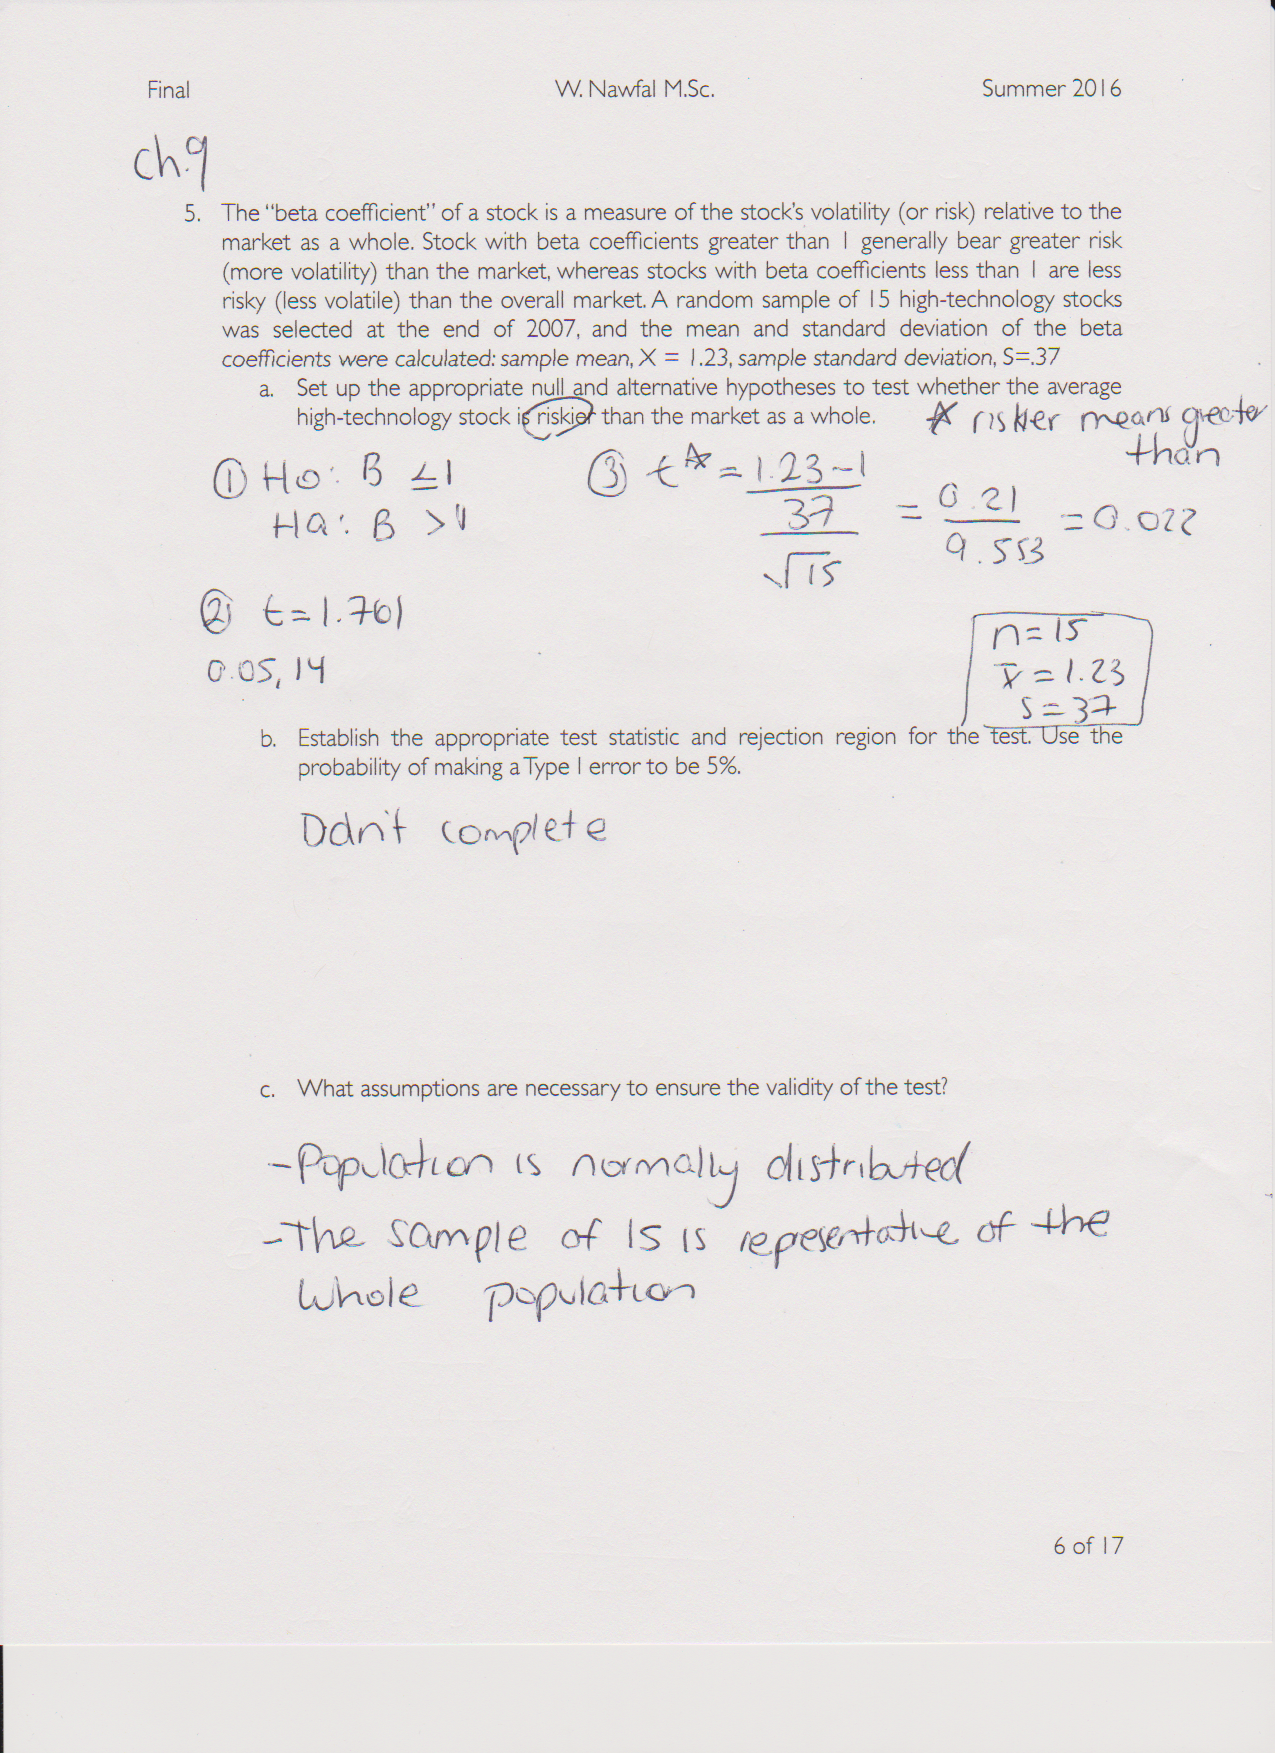 Final W. Nawfal M.Sc. Summer 2016
ch.9
5. The “beta coefficient” of a stock is a measure of the stock's volatility (or risk) relative to the
market as a whole. Stock with beta coefficients greater than 1 generally bear greater risk
(more volatility) than the market, whereas stocks with beta coefficients less than 1 are less
risky (less volatile) than the overall market. A random sample of 15 high-technology stocks
was selected at the end of 2007, and the mean and standard deviation of the beta
coefficients were calculated: sample mean, X = 1.23, sample standard deviation, S=.37
a. Set up the appropriate null and alternative hypotheses to test whether the average
high-technology stock is riskier than the market as a whole.
* risker means greater
than
① Ho: B ≤1
Ha: B >1
③ t* = 1.23-1 / 37 / √15 = 0.21 / 9.553 = 0.022
② t = 1.761
0.05, 14
n = 15
x̄ = 1.23
S = 37
b. Establish the appropriate test statistic and rejection region for the test. Use the
probability of making a Type I error to be 5%.
Ddn't complete
c. What assumptions are necessary to ensure the validity of the test?
- Population is normally distributed
- The sample of 15 is representative of the
whole population
6 of 17